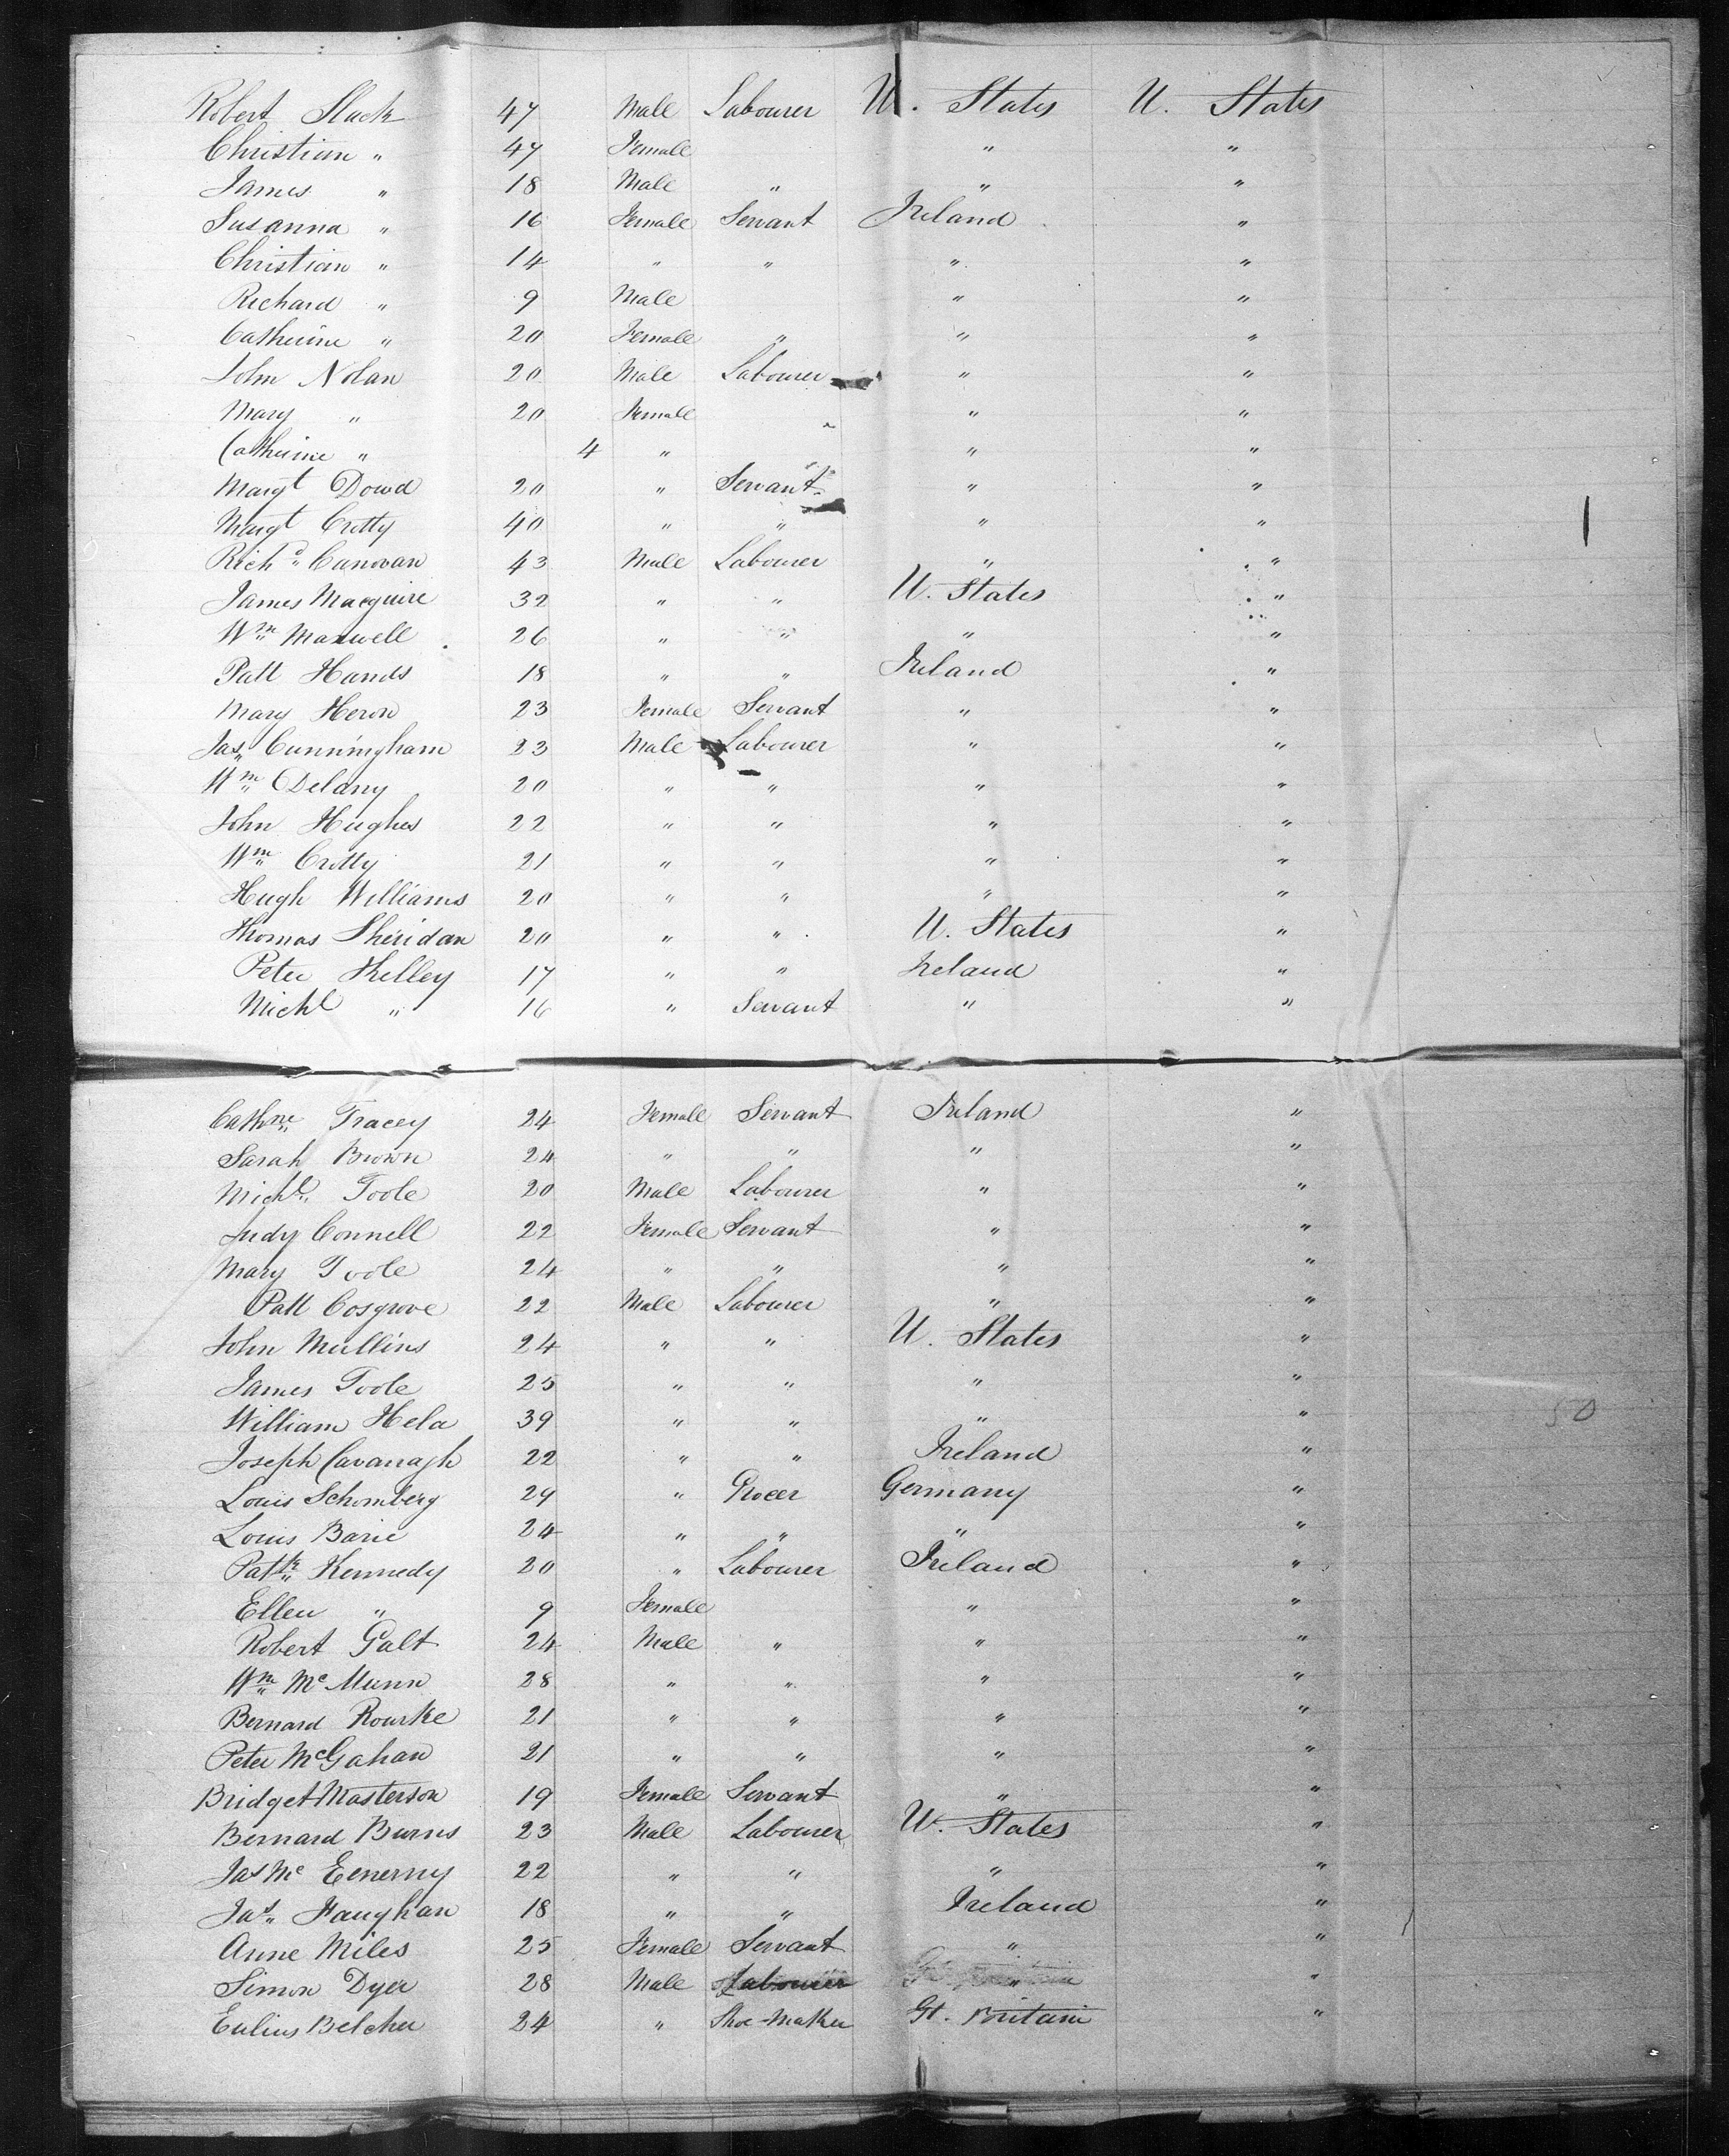 Robert Slack 47 Male Labourer U. States U. States
Christian " 47 Female " "
James " 18 Male " " "
Susanna " 16 Female Servant Ireland "
Christian " 14 " " " "
Richard " 9 Male " "
Catherine " 20 Female " " "
John Nolan 20 Male Labourer " "
Mary " 20 Female " "
Catherine " 4 " " "
Margt Dowd 20 " Servant " "
Margt Critty 40 " " " "
Richd Canovan 43 Male Labourer " "
James Macguire 32 " " U. States "
Wm Maxwell 26 " " " "
Patt Hands 18 " " Ireland "
Mary Heron 23 Female Servant " "
Jas Cunningham 23 Male Labourer " "
Wm Delany 20 " " " "
John Hughes 22 " " " "
Wm Critty 21 " " " "
Hugh Williams 20 " " " "
Thomas Sheridan 20 " " U. States "
Peter Kelley 17 " " Ireland "
Michl " 16 " Servant " "
Cathne Tracey 24 Female Servant Ireland "
Sarah Brown 24 " " " "
Michl Toole 20 Male Labourer " "
Judy Connell 22 Female Servant " "
Mary Toole 24 " " " "
Patt Cosgrove 22 Male Labourer " "
John Mullins 24 " " U. States "
James Toole 25 " " " "
William Hela 39 " " " " 50
Joseph Cavanagh 22 " " Ireland "
Louis Schomberg 29 " Grocer Germany "
Louis Barie 24 " " " "
Pattk Kennedy 20 " Labourer Ireland "
Ellen " 9 Female " "
Robert Galt 24 Male " " "
Wm McMunn 28 " " " "
Bernard Rourke 21 " " " "
Peter McGahan 21 " " " "
Bridget Masterson 19 Female Servant " "
Bernard Burns 23 Male Labourer U. States "
Jas Mc Eenerny 22 " " " "
Jas Faughan 18 " " Ireland "
Anne Miles 25 Female Servant " "
Simon Dyer 28 Male Labourer " "
Eulius Belcher 24 " Shoe-Maker Gt. Britain "